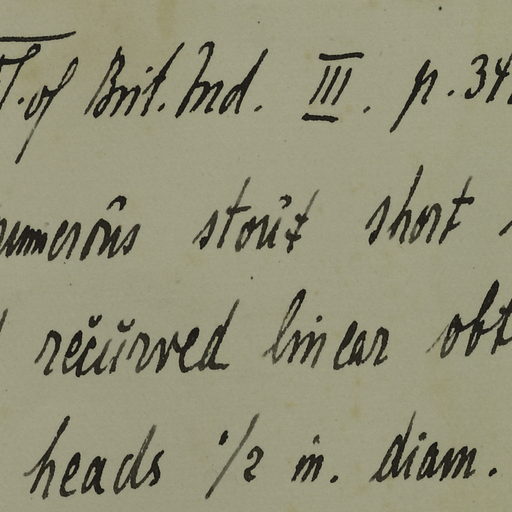 Fl. of Brit. Ind. III. p. 34
numerous stout short
recurved linear obt
heads 1/2 in. diam.